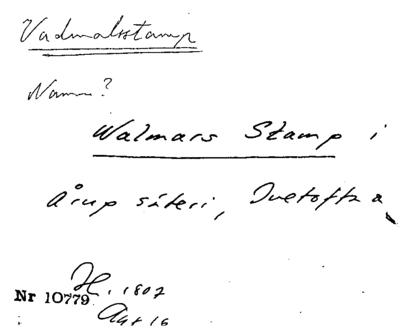 Vadmalsstamp
Namn?
Walmars Stamp i
Årup säteri, Ivetofta
H. 1807
Nr 10779
Akt 16